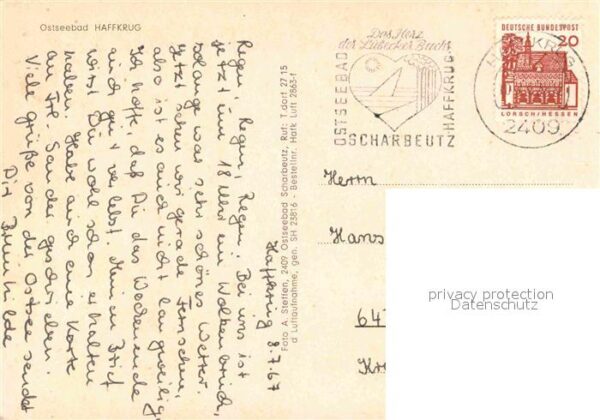 Ostseebad HAFFKRUG
Haffkrug 8.7.67
Regen, Regen, Regen! Bei uns ist
jetzt um 18 Uhr ein Wolkenbruch,
solang war sehr schönes Wetter.
Jetzt sehen wir gerade Fernsehen,
also ist es auch nicht langweilig.
Ich hoffe, daß Du das Wochenende
auch gut verlebst. Meinen Brief
wirst Du wohl schon erhalten
haben. Habe auch eine Karte
an Frl. Sander geschrieben.
Viele Grüße von der Ostsee sendet
Dir Brunhilde
Foto A. Steffen, 2409 Ostseebad Scharbeutz, Ruf: T.dorf 27 15
d Luftaufnahme, gen. SH 25816 - Bestellnr. Hafk Luft 2863-1
Das Herz
der Lübecker Bucht
OSTSEEBAD
SCHARBEUTZ
HAFFKRUG
HAFFKRUG
2409
DEUTSCHE BUNDESPOST
20
LORSCH/HESSEN
Herrn
Hans
64
Kr
privacy protection
Datenschutz